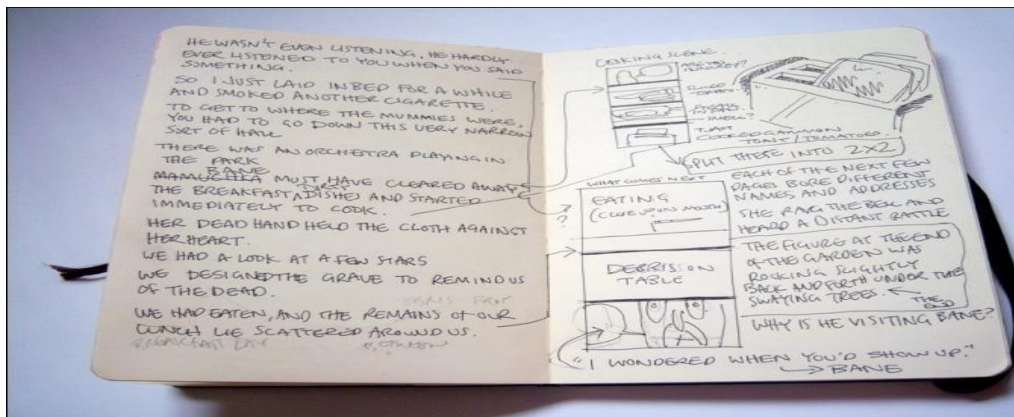 HE WASN'T EVEN LISTENING. HE HARDLY
EVER LISTENED TO YOU WHEN YOU SAID
SOMETHING.
SO I JUST LAID IN BED FOR A WHILE
AND SMOKED ANOTHER CIGARETTE.
TO GET TO WHERE THE MUMMIES WERE,
YOU HAD TO GO DOWN THIS VERY NARROW
SORT OF HALL
THERE WAS AN ORCHESTRA PLAYING IN
THE PARK
BANE
MUST HAVE CLEARED AWAY
THE BREAKFAST DISHES AND STARTED
IMMEDIATELY TO COOK.
HER DEAD HAND HELD THE CLOTH AGAINST
HER HEART.
WE HAD A LOOK AT A FEW STARS
WE DESIGNED THE GRAVE TO REMIND US
OF THE DEAD.
WE HAD EATEN, AND THE REMAINS OF OUR
LUNCH LIE SCATTERED AROUND US.
BREAKFAST
COOKING SCENE.
SMELL?
TOAST
COOKED GAMMON
TOAST / TOMATOES.
SPLIT THESE INTO 2X2
WHAT COMES NEXT
?
EATING
(CLOSE UP ON MOUTH)
DEBRIS ON
TABLE
EACH OF THE NEXT FEW
PAGES BORE DIFFERENT
NAMES AND ADDRESSES
SHE RANG THE BELL AND
HEARD A DISTANT RATTLE
THE FIGURE AT THE END
OF THE GARDEN WAS
ROCKING SLIGHTLY
BACK AND FORTH UNDER THE
SWAYING TREES.
THE
END
WHY IS HE VISITING BANE?
"I WONDERED WHEN YOU'D SHOW UP."
BANE